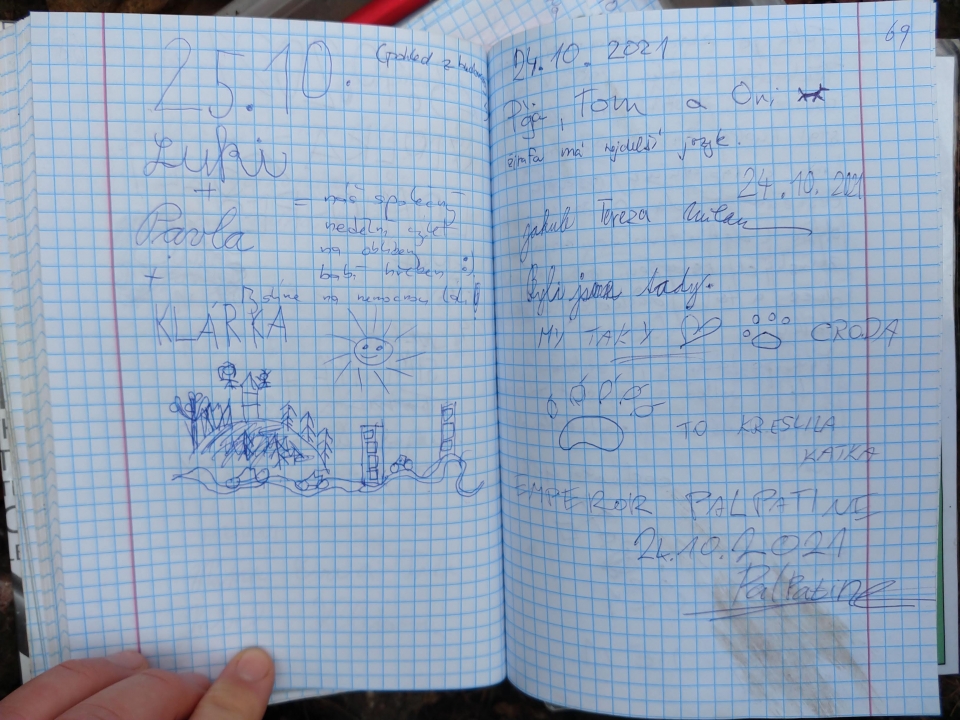 25.10.
Luki
+
Pavla
+
KLÁRKA
(pohled z
= náš společný
nedělní výlet
na oblíbený
babí hřeben :)
na nemocnou
69
24.10.2021
Tom a
žirafa má nejdelší jazyk.
24.10.2021
Jakub Tereza Milan
Byli jsme tady.
MY TAKY
TO KRESLILA
KATKA
EMPEROR PALPATINE
24.10.2021
Palpatine